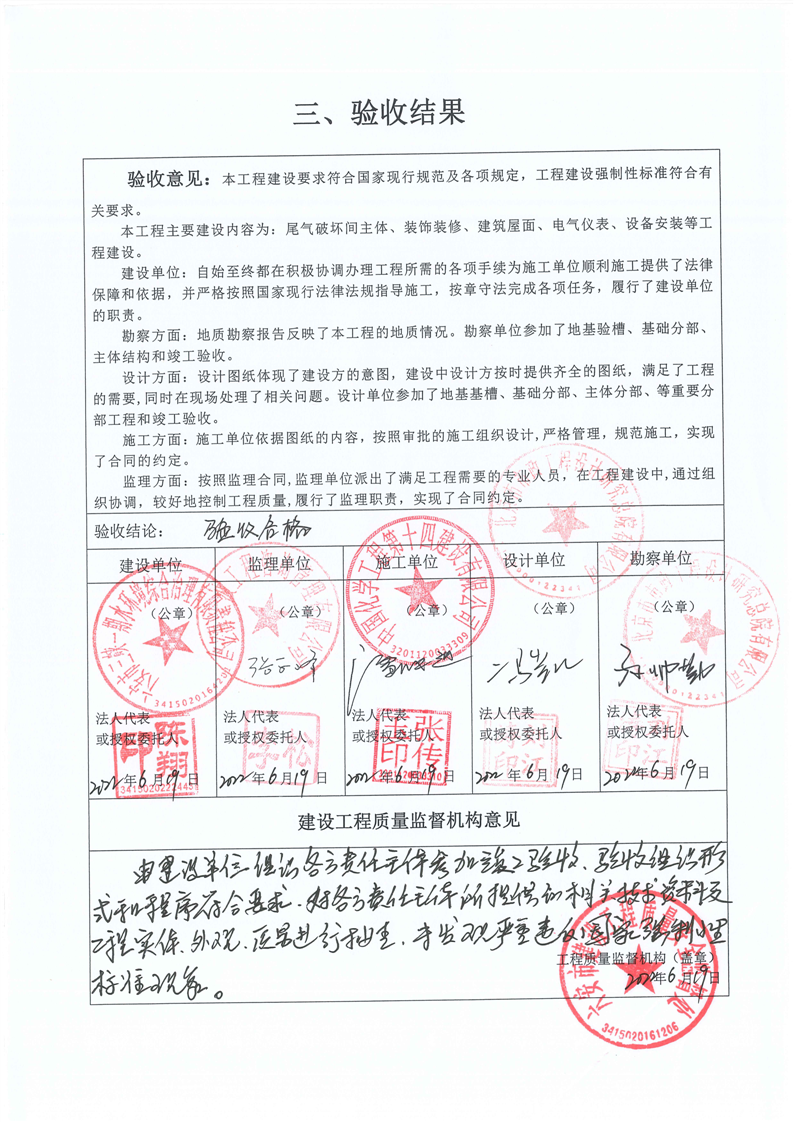 三、验收结果
验收意见：本工程建设要求符合国家现行规范及各项规定，工程建设强制性标准符合有
关要求。
本工程主要建设内容为：尾气破坏间主体、装饰装修、建筑屋面、电气仪表、设备安装等工
程建设。
建设单位：自始至终都在积极协调办理工程所需的各项手续为施工单位顺利施工提供了法律
保障和依据，并严格按照国家现行法律法规指导施工，按章守法完成各项任务，履行了建设单位
的职责。
勘察方面：地质勘察报告反映了本工程的地质情况。勘察单位参加了地基验槽、基础分部、
主体结构和竣工验收。
设计方面：设计图纸体现了建设方的意图，建设中设计方按时提供齐全的图纸，满足了工程
的需要,同时在现场处理了相关问题。设计单位参加了地基基槽、基础分部、主体分部、等重要分
部工程和竣工验收。
施工方面：施工单位依据图纸的内容，按照审批的施工组织设计,严格管理，规范施工，实现
了合同的约定。
监理方面：按照监理合同,监理单位派出了满足工程需要的专业人员，在工程建设中,通过组
织协调，较好地控制工程质量,履行了监理职责，实现了合同约定。
验收结论： 验收合格
建设单位 监理单位 施工单位 设计单位 勘察单位
（公章） （公章） （公章） （公章） （公章）
中国化学工程第十四建设有限公司
3201120033309
3415020164236
法人代表 法人代表 法人代表 法人代表 法人代表
或授权委托人 或授权委托人 或授权委托人 或授权委托人 或授权委托人
陈翔印
张传玉印
2022年6月19日 2022年6月19日 2022年6月19日 2022年6月19日 2022年6月19日
建设工程质量监督机构意见
由建设单位组织各方责任主体参加竣工验收、验收组织形
式和程序符合要求．对各方责任主体所提供的相关技术资料及
工程实体、外观、质量进行抽查，未发现严重违反国家强制性
标准现象。
工程质量监督机构（盖章）
2022年6月19日
3415020161206